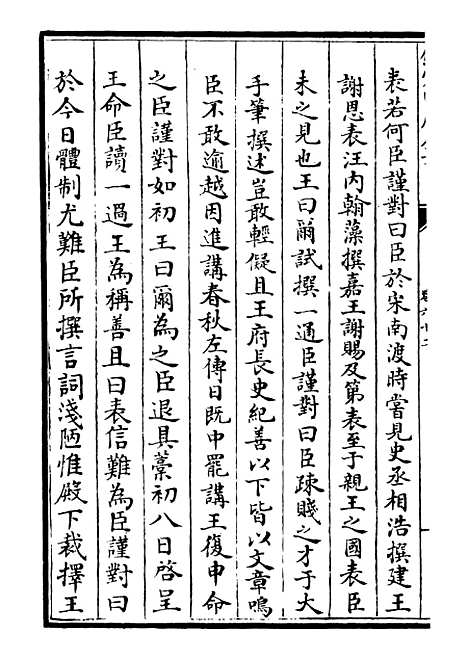 表若何臣謹對曰臣於宋南渡時嘗見史丞相浩撰建王
謝恩表汪内翰藻撰嘉王謝賜及第表至于親王之國表臣
未之見也王曰爾試撰一通臣謹對曰臣疎賤之才于大
手筆撰述豈敢輕儗且王府長史紀善以下皆以文章鳴
臣不敢逾越因進講春秋左傳日既中罷講王復申命
之臣謹對如初王曰爾為之臣退具藁初八日啓呈
王命臣讀一過王為稱善且曰表信難為臣謹對曰
於今日體制尤難臣所撰言詞淺陋惟殿下裁擇王